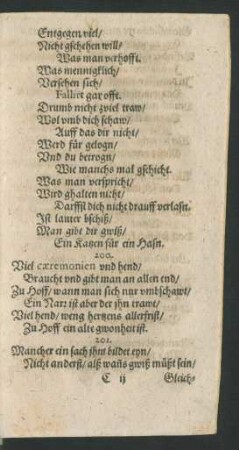 Entgegen viel/
Nicht gschehen will/
Was man verhofft.
Was menniglich/
Versehen sich/
Falliret gar offt.
Drumb nicht zviel traw/
Wol vmb dich schaw/
Auff das dir nicht/
Werd für gelogn/
Vnd du betrogn/
Wie manchs mal gschicht.
Was man verspricht/
Wird ghalten nicht/
Darffst dich nicht drauff verlasn.
Ist lauter bschiß/
Man gibt dir gwiß/
Ein Katzen für ein Hasn.
200.
Viel cæremonien vnd hend/
Braucht vnd gibt man an allen end/
Zu Hoff/ wann man sich nur vmbschawt/
Ein Narr ist aber der ihn trawt/
Viel hend/ weng hertzens allerfrist/
Zu Hoff ein alte gwonheit ist.
201.
Mancher ein sach ihm bildet eyn/
Nicht anderst/ alß wañs gwiß müßt sein/
C ij Gleich